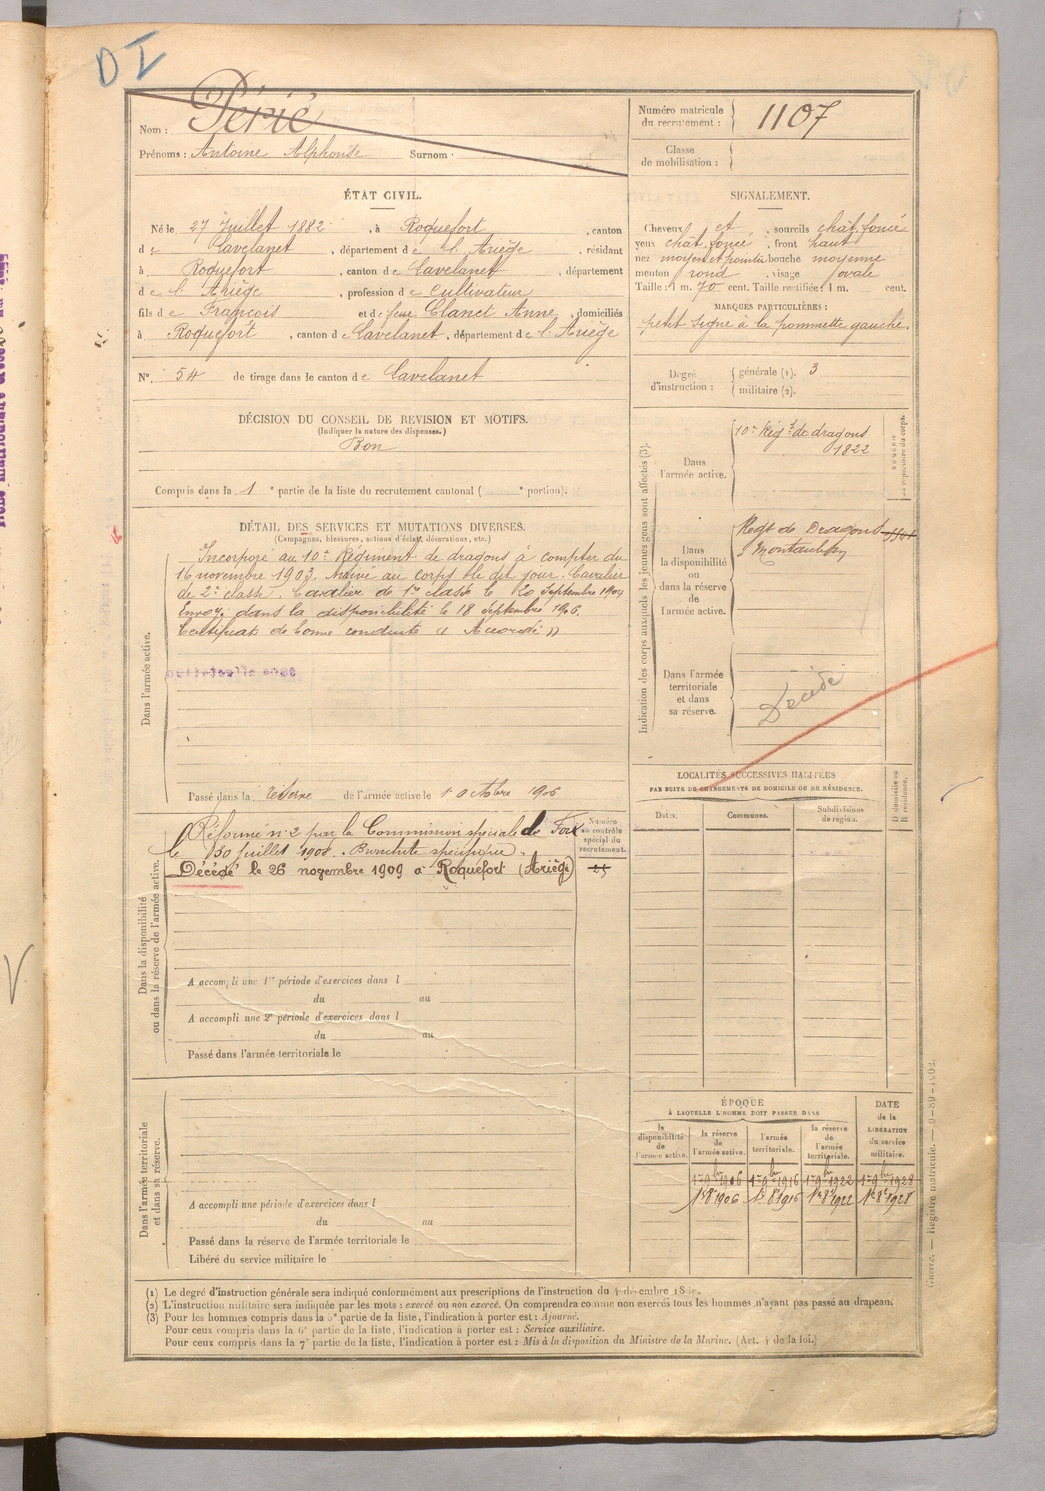 DI
Nom : Périé
Prénoms : Antoine Alphonse Surnom ·
Numéro matricule du recrutement : 1107
Classe de mobilisation :
ÉTAT CIVIL.
Né le 27 Juillet 1882, à Roquefort, canton
de Lavelanet, département de l'Ariège, résidant
à Roquefort, canton de Lavelanet, département
de l'Ariège, profession de Cultivateur
fils de François et de feue Clanet Anne, domiciliés
à Roquefort, canton de Lavelanet, département de l'Ariège
SIGNALEMENT.
Cheveux et, sourcils chât. foncé
yeux chât. foncé, front haut
nez moyen et pointu bouche moyenne
menton rond, visage ovale
Taille : 1 m. 70 cent. Taille rectifiée : 1 m. cent.
MARQUES PARTICULIÈRES :
petit signe à la pommette gauche.
N° 54 de tirage dans le canton de Lavelanet
Degré d'instruction : générale (1). 3
militaire (2).
DÉCISION DU CONSEIL DE REVISION ET MOTIFS.
(Indiquer la nature des dispenses.)
Bon
Compris dans la 1e partie de la liste du recrutement cantonal ( e portion).
DÉTAIL DES SERVICES ET MUTATIONS DIVERSES.
(Campagnes, blessures, actions d'éclat, décorations, etc.)
Dans l'armée active.
Incorporé au 10e Régiment de dragons à compter du
16 novembre 1903. Arrivé au corps le dit jour. Cavalier
de 2e classe. Cavalier de 1re classe le 20 Septembre 1904
Envoyé dans la disponibilité le 18 Septembre 1906.
Certificat de bonne conduite « Accordé »
Passé dans la réserve de l'armée active le 1 Octobre 1906
Indication des corps auxquels les jeunes gens sont affectés (3).
Dans l'armée active.
10e Régt de dragons
1822
NUMÉRO au répertoire du corps.
Dans la disponibilité ou dans la réserve de l'armée active.
Regt de Dragons
Montauban
Dans l'armée territoriale et dans sa réserve.
Décédé
LOCALITÉS SUCCESSIVES HABITÉES
PAR SUITE DE CHANGEMENTS DE DOMICILE OU DE RÉSIDENCE.
Dates. Communes. Subdivisions de région. D domicile ou R résidence.
Dans la disponibilité ou dans la réserve de l'armée active.
Réformé n° 2 par la Commission spéciale de Foix
le 30 Juillet 1908. Bronchite spécifique.
Décédé le 26 novembre 1909 à Roquefort (Ariège)
Numéro au contrôle spécial du recrutement.
A accompli une 1re période d'exercices dans l
du au
A accompli une 2e période d'exercices dans l
du au
Passé dans l'armée territoriale le
Dans l'armée territoriale et dans sa réserve.
A accompli une période d'exercices dans l
du au
Passé dans la réserve de l'armée territoriale le
Libéré du service militaire le
ÉPOQUE
À LAQUELLE L'HOMME DOIT PASSER DANS
la disponibilité de l'armée active. la réserve de l'armée active. l'armée territoriale. la réserve de l'armée territoriale. DATE de la LIBÉRATION du service militaire.
1er 9bre 1906 1er 9bre 1916 1er 9bre 1922 1er 9bre 1928
1er 8e 1906 1er 8e 1916 1er 8e 1922 1er 8e 1928
(1) Le degré d'instruction générale sera indiqué conformément aux prescriptions de l'instruction du 4 décembre
(2) L'instruction militaire sera indiquée par les mots : exercé ou non exercé. On comprendra comme non exercés tous les hommes n'ayant pas passé au drapeau.
(3) Pour les hommes compris dans la 5e partie de la liste, l'indication à porter est : Ajourné.
Pour ceux compris dans la 6e partie de la liste, l'indication à porter est : Service auxiliaire.
Pour ceux compris dans la 7e partie de la liste, l'indication à porter est : Mis à la disposition du Ministre de la Marine. (Art. 4 de la loi.)
Guerre. — Registre matricule.